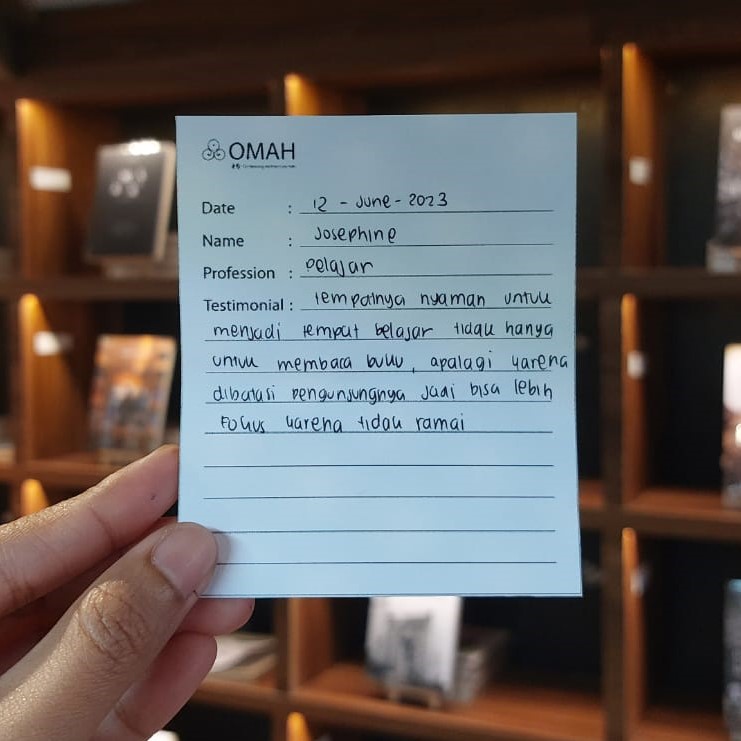 OMAH
Date : 12 - June - 2023
Name : Josephine
Profession : pelajar
Testimonial : tempatnya nyaman untuk
menjadi tempat belajar tidak hanya
untuk membaca buku, apalagi karena
dibatasi pengunjungnya jadi bisa lebih
fokus karena tidak ramai